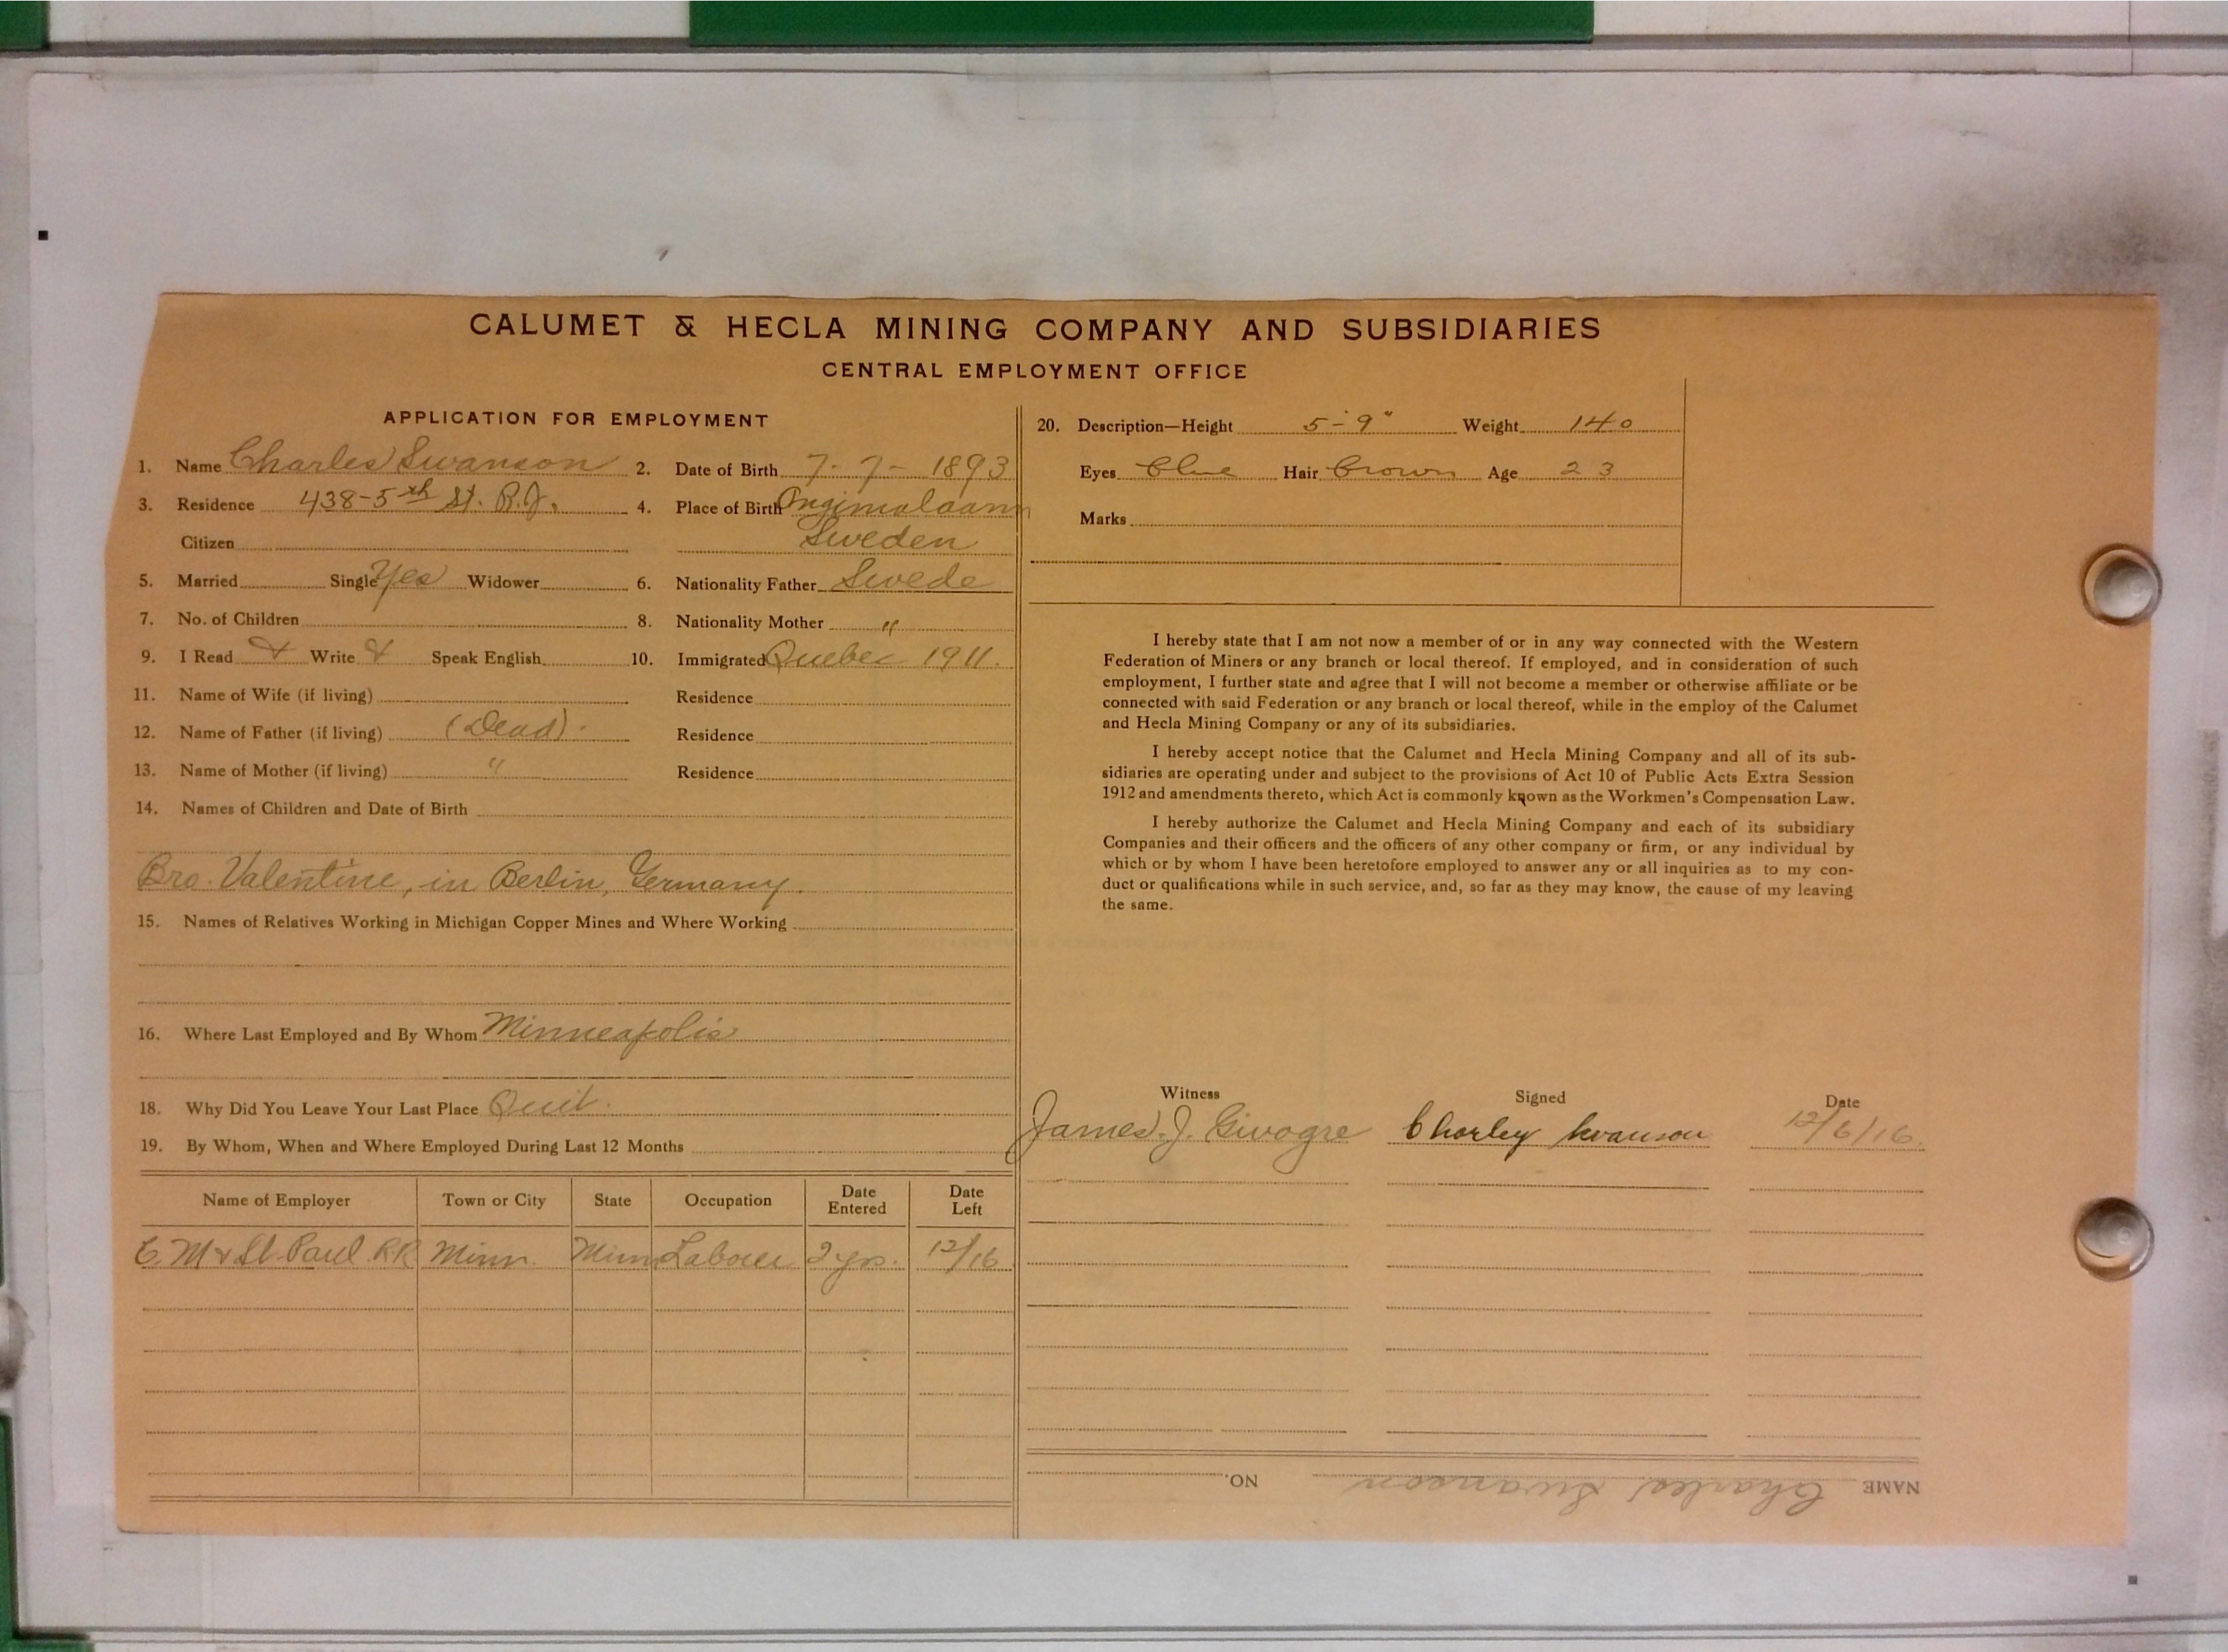 CALUMET & HECLA MINING COMPANY AND SUBSIDIARIES
CENTRAL EMPLOYMENT OFFICE
APPLICATION FOR EMPLOYMENT
1. Name Charles Swanson 2. Date of Birth 7-7-1893
3. Residence 438-5th St. R.J. 4. Place of Birth
Citizen Sweden
5. Married Single Yes Widower 6. Nationality Father Swede
7. No. of Children 8. Nationality Mother "
9. I Read & Write & Speak English 10. Immigrated Quebec 1911.
11. Name of Wife (if living) Residence
12. Name of Father (if living) (Dead). Residence
13. Name of Mother (if living) " Residence
14. Names of Children and Date of Birth
Bro. Valentine, in Berlin, Germany.
15. Names of Relatives Working in Michigan Copper Mines and Where Working
16. Where Last Employed and By Whom Minneapolis
18. Why Did You Leave Your Last Place Quit.
19. By Whom, When and Where Employed During Last 12 Months
Name of Employer Town or City State Occupation Date Entered Date Left
C. M & St. Paul. RR Minn. Minn Labour 2 yrs. 12/16
20. Description—Height 5'-9" Weight 140
Eyes Blue Hair Brown Age 23
Marks
I hereby state that I am not now a member of or in any way connected with the Western
Federation of Miners or any branch or local thereof. If employed, and in consideration of such
employment, I further state and agree that I will not become a member or otherwise affiliate or be
connected with said Federation or any branch or local thereof, while in the employ of the Calumet
and Hecla Mining Company or any of its subsidiaries.
I hereby accept notice that the Calumet and Hecla Mining Company and all of its sub-
sidiaries are operating under and subject to the provisions of Act 10 of Public Acts Extra Session
1912 and amendments thereto, which Act is commonly known as the Workmen's Compensation Law.
I hereby authorize the Calumet and Hecla Mining Company and each of its subsidiary
Companies and their officers and the officers of any other company or firm, or any individual by
which or by whom I have been heretofore employed to answer any or all inquiries as to my con-
duct or qualifications while in such service, and, so far as they may know, the cause of my leaving
the same.
Witness Signed Date
James. J. Charley Swanson 12/6/16.
NAME Charles Swanson NO.